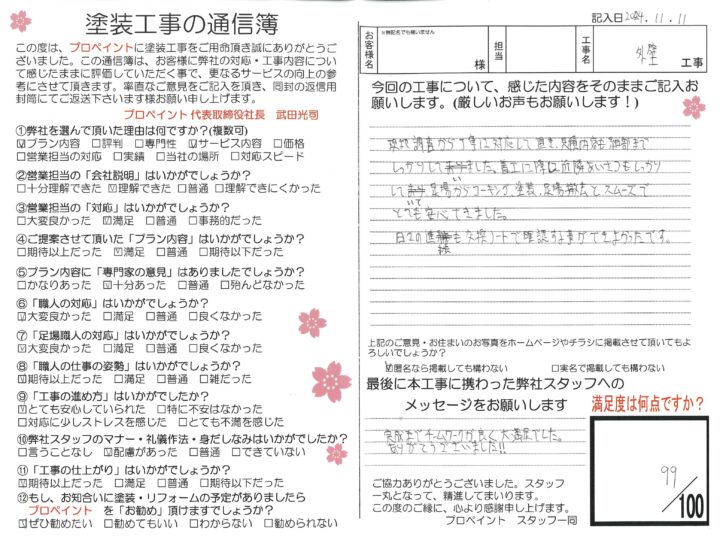 塗装工事の通信簿
この度は、プロペイントに塗装工事をご用命頂き誠にありがとうご
ざいました。この通信簿は、お客様に弊社の対応・工事内容につい
て感じたままに評価していただく事で、更なるサービスの向上の参
考にさせて頂きます。率直なご意見をご記入を頂き、同封の返信用
封筒にてご返送下さいます様お願い申し上げます。
プロペイント 代表取締役社長 武田光司
①弊社を選んで頂いた理由は何ですか?(複数可)
☑プラン内容 □評判 □専門性 ☑サービス内容 □価格
□営業担当の対応 □実績 □当社の場所 □対応スピード
②営業担当の「会社説明」はいかがでしょうか?
□十分理解できた ☑理解できた □普通 □理解できにくかった
③営業担当の「対応」はいかがでしょうか?
□大変良かった ☑満足 □普通 □事務的だった
④ご提案させて頂いた「プラン内容」はいかがでしょうか?
□期待以上だった ☑満足 □普通 □期待以下だった
⑤プラン内容に「専門家の意見」はありましたでしょうか?
□かなりあった ☑十分あった □普通 □殆んどなかった
⑥「職人の対応」はいかがでしょうか?
☑大変良かった □満足 □普通 □良くなかった
⑦「足場職人の対応」はいかがでしょうか?
☑大変良かった □満足 □普通 □良くなかった
⑧「職人の仕事の姿勢」はいかがでしょうか?
☑期待以上だった □満足 □普通 □雑だった
⑨「工事の進め方」はいかがでしょうか?
☑とても安心していられた □特に不安はなかった
□対応に少しストレスを感じた □とても不満を感じた
⑩弊社スタッフのマナー・礼儀作法・身だしなみはいかがでしたか?
□言うことなし ☑配慮があった □普通 □できていない
⑪「工事の仕上がり」はいかがでしょうか?
☑期待以上だった □満足 □普通 □期待以下だった
⑫もし、お知合いに塗装・リフォームの予定がありましたら
プロペイント を「お勧め」頂けますでしょうか?
☑ぜひ勧めたい □勧めてもいい □わからない □勧められない
記入日 2024.11.11
お客様名 ※無記名でも構いません 様 担当 工事名 外壁 工事
今回の工事について、感じた内容をそのままご記入お
願いします。(厳しいお声もお願いします!)
現地調査から丁寧に対応して頂き、見積内容も細部まで
しっかりしていました。着工に際し近隣あいさつもしっかり
して頂いて足場からコーキング、塗装、足場撤去とスムーズで
とても安心できました。
日々の進捗も交換ノートで確認する事ができよかったです。
上記のご意見・お住まいのお写真をホームページやチラシに掲載させて頂いてもよ
ろしいでしょうか?
☑匿名なら掲載しても構わない □実名で掲載しても構わない
最後に本工事に携わった弊社スタッフへの
メッセージをお願いします
完成までチームワークが良く大満足でした。
ありがとうございました!!
満足度は何点ですか?
99
/100
ご協力ありがとうございました。スタッフ
一丸となって、精進してまいります。
この度のご縁に、心より感謝申し上げます。
プロペイント スタッフ一同